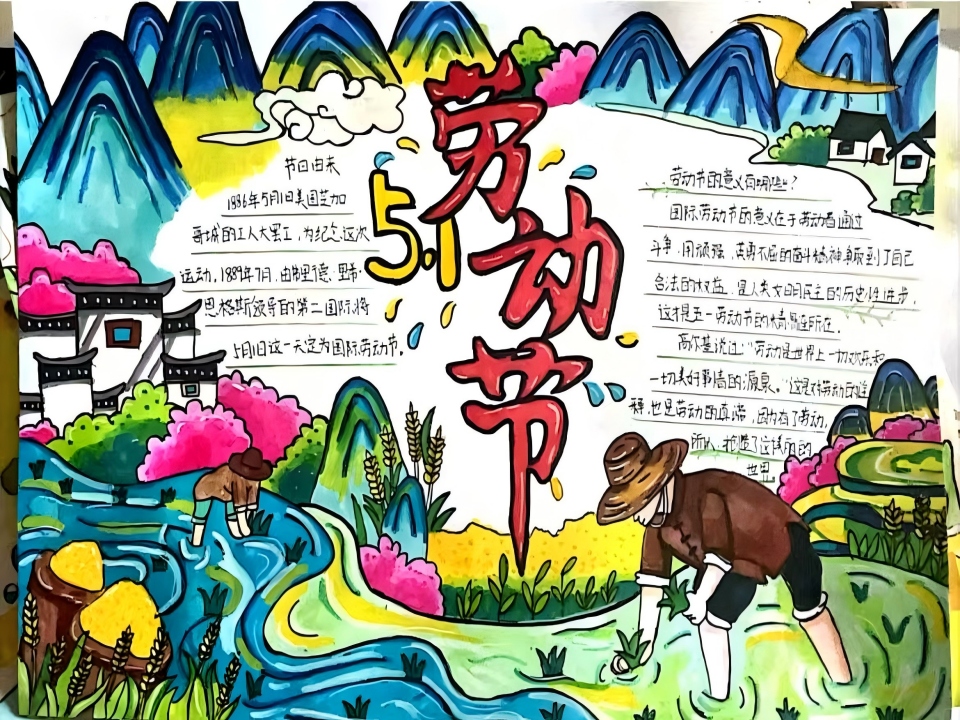 劳动节
5.1
节日由来
1886年5月1日美国芝加
哥城的工人大罢工,为纪念这次
运动,1889年7月,由弗里德·里希·
恩格斯领导的第二国际将
5月1日这一天定为国际劳动节。
劳动节的意义有哪些?
国际劳动节的意义在于劳动者通过
斗争,用顽强、英勇不屈的奋斗精神争取到了自己
合法的权益,是人类文明民主的历史性进步,
这才是五一劳动节的精髓所在。
高尔基说过:“劳动是世界上一切欢乐和
一切美好事情的源泉。”这是对劳动的诠
释,也是劳动的真谛,因为有了劳动,
所以,创造了这美丽的
世界。